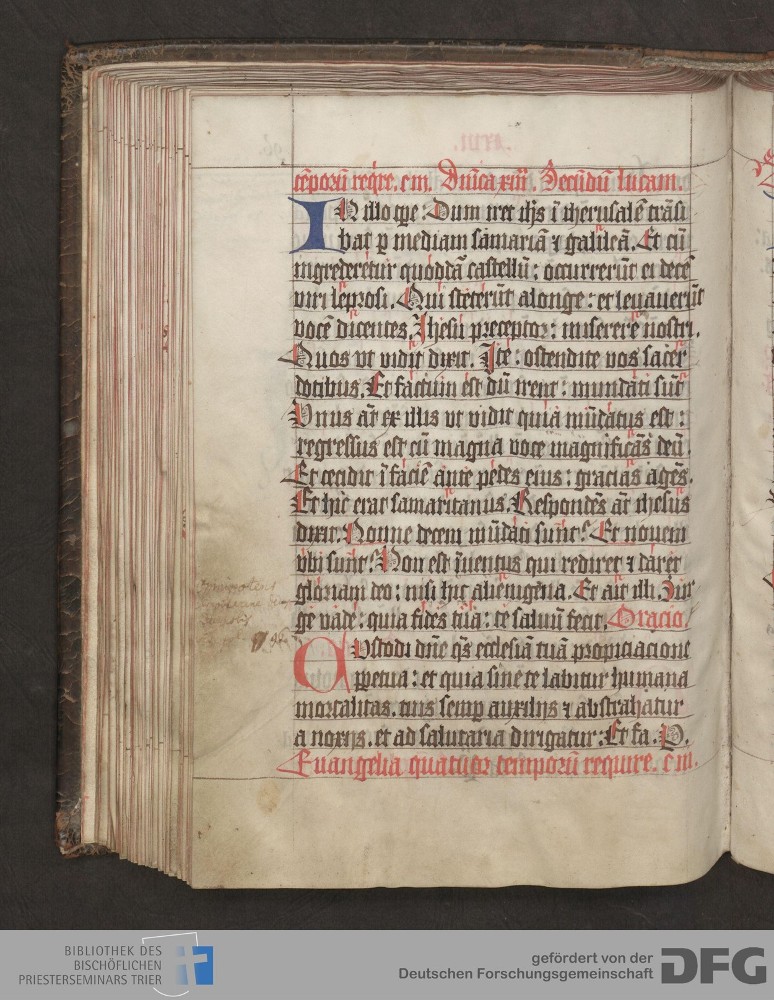 tēporū reqͥre. c m. Dn̄ica xiiii. Secūdū lucam.
IN illo tꝑe: Dum iret ih̄s ī iherusalē trāsi
bat ꝑ mediam samariā ⁊ galileā. Et cū
ingrederetur quoddā castellū: occurrerūt ei decē
viri leprosi. Qui steterūt alonge: et leuauerūt
vocē dicentes. Jhesu preceptor: miserere nostri.
Quos vt vidit dixit. Jte: ostendite vos sacer
dotibus. Et factum est dū irent: mundati sūt
Vnus āt ex illis vt vidit quia mūdatus est:
regressus est cū magna voce magnificās deū.
Et cecidit ī faciē ante pedes eius: gracias agēs.
Et hic erat samaritanus. Respondēs āt ihesus
dixit. Nonne decem mūdati sunt? Et nouem
vbi sunt? Non est īuentus qui rediret ⁊ daret
gloriam deo: nisi hic alienigena. Et ait illi. Sur
ge vade: quia fides tua: te saluū fecit. Oracio
CVstodi dn̄e q̄s ecclesiā tuā propiciacione
ꝑpetua: et quia sine te labitur humana
mortalitas. tuis semꝑ auxilijs ⁊ abstrahatur
a noxijs. et ad salutaria dirigatur: Et fa. P.
Euangelia quatuor temporū require. c m.
BIBLIOTHEK DES
BISCHÖFLICHEN
PRIESTERSEMINARS TRIER
gefördert von der
Deutschen Forschungsgemeinschaft
DFG